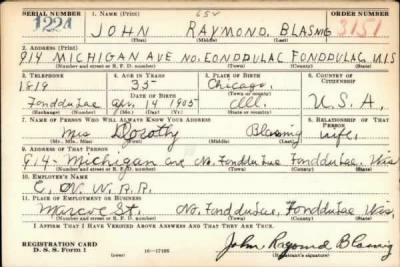 SERIAL NUMBER 1. NAME (Print) 652 ORDER NUMBER
1224 JOHN RAYMOND BLASNIG 3151
(First) (Middle) (Last)
2. ADDRESS (Print)
914 MICHIGAN AVE NO. FONDDULAC FONDDULAC, WIS
(Number and street or R. F. D. number) (Town) (County) (State)
3. TELEPHONE 4. AGE IN YEARS 5. PLACE OF BIRTH 6. COUNTRY OF CITIZENSHIP
1819 35 Chicago,
DATE OF BIRTH (Town or county)
Fond du Lac Apr. 14 1905 Ill. U.S.A.
(Exchange) (Number) (Mo.) (Day) (Yr.) (State or country)
7. NAME OF PERSON WHO WILL ALWAYS KNOW YOUR ADDRESS 8. RELATIONSHIP OF THAT PERSON
Mrs Dorothy Blasnig wife.
(Mr., Mrs., Miss) (First) (Middle) (Last)
9. ADDRESS OF THAT PERSON
914 - Michigan ave No. Fond du Lac Fond du Lac, Wis
(Number and street or R. F. D. number) (Town) (County) (State)
10. EMPLOYER'S NAME
C. N. W. R. R.
11. PLACE OF EMPLOYMENT OR BUSINESS
St. No. Fond du Lac, Fond du Lac Wis.
(Number and street or R. F. D. number) (Town) (County) (State)
I AFFIRM THAT I HAVE VERIFIED ABOVE ANSWERS AND THAT THEY ARE TRUE.
REGISTRATION CARD
D. S. S. Form 1 16-17105 John Raymond Blasnig
(Registrant's signature)